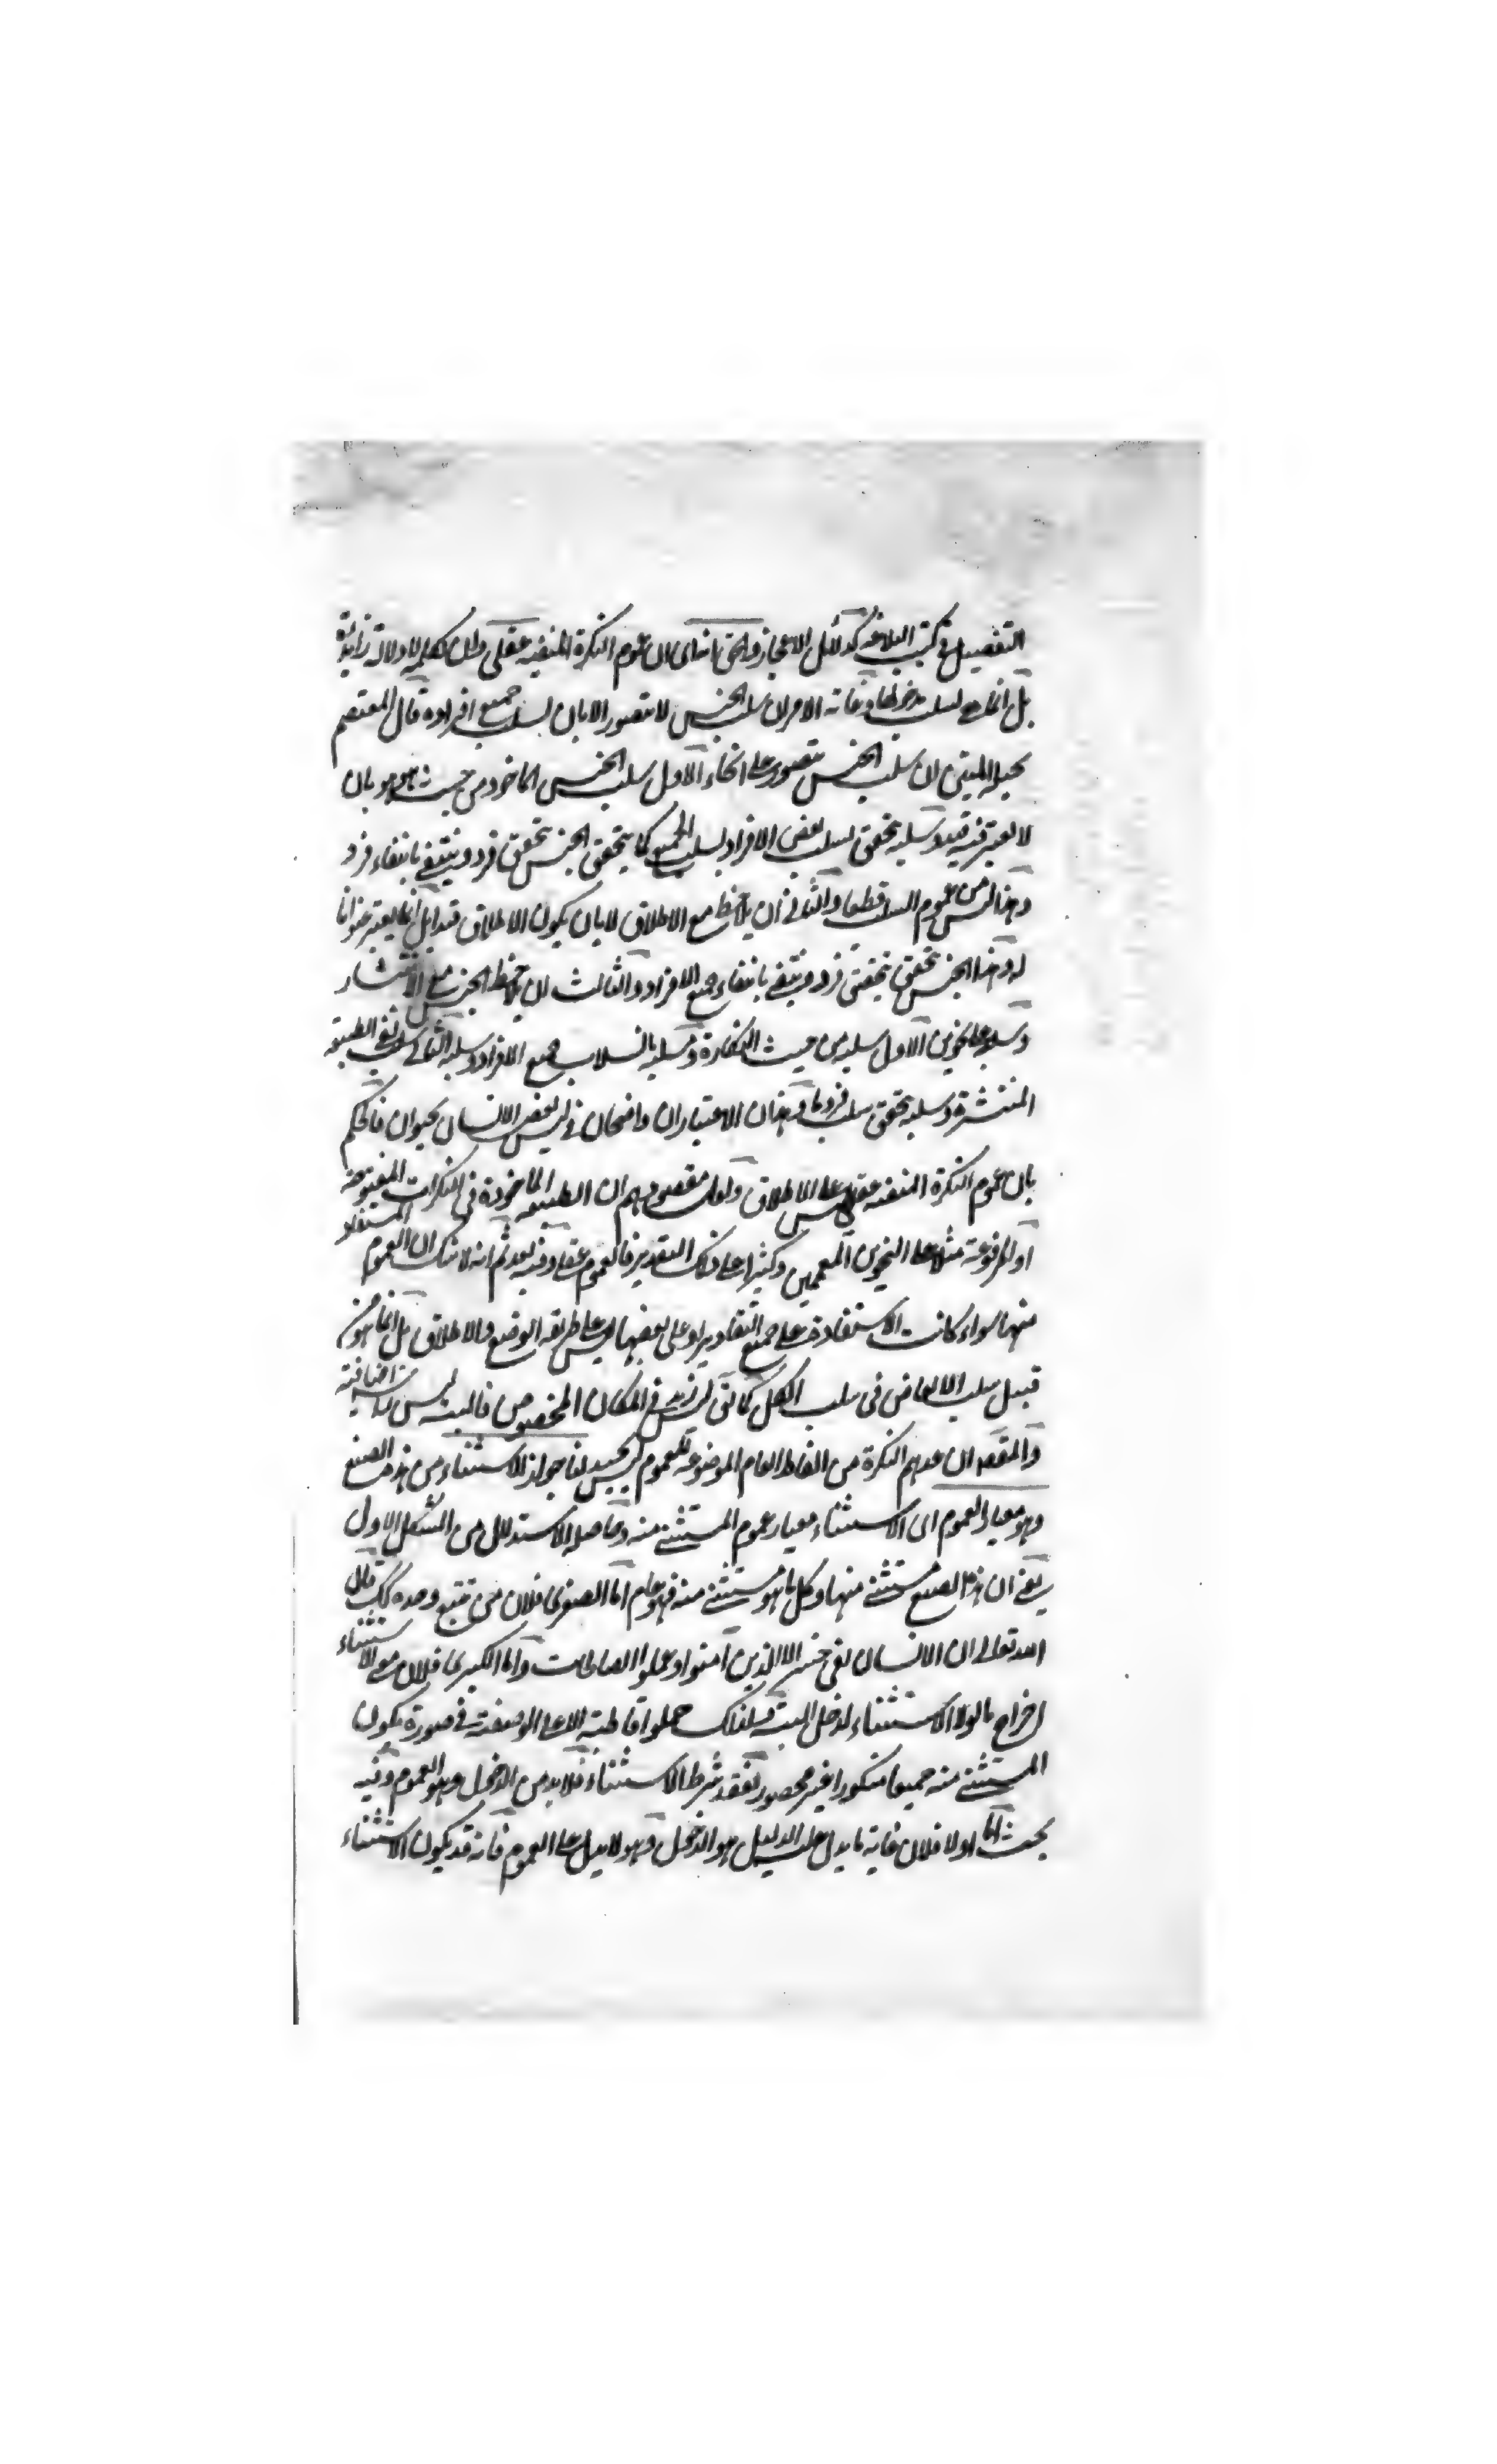 التفصيل فى كتب البلاغة كدلائل الاعجاز والحق ما نداى ان عموم النكرة المنفية عقلى وان كلمة لا دلالة زائدة
بل انما هى لسلب مدخولها وغاية الامر ان سلب الجنس لا يتصور الا بان يسلب جميع افراده قال المعتصم
بحبله المتين ان سلب الجنس يتصور على انحاء الاول سلب الجنس الماخوذ من حيث هو هو بان
لا يعتبر فيه قيد وسلبه يتحقق بسلب بعض الافراد بسلب الجميع كما يتحقق الجنس بتحقق فرد وينتفى بانتفاء فرد
وهذا ليس من عموم السلب قطعا والثانى ان يلاحظ مع الاطلاق لا بان يكون الاطلاق قيدا بل انما يعتبر عنوانا
له وهذا الجنس يتحقق بتحقق فرد وينتفى بانتفاء جميع الافراد والثالث ان يلاحظ الجنس مع الانتشار
وسلبه على نحوين الاول سلبه من حيث النكارة وسلبه بانسلاب جميع الافراد وسلبه الثانى سلب نفى الطبيعة
المنتشرة وسلبه يتحقق بسلب فرد ما وهذان الاعتباران واضحان فى ليس بعض الانسان بحيوان فالحكم
بان عموم النكرة المنفية عقلى ليس على الاطلاق ولعل مقصودهم ان الطبيعة الماخوذة فى النكرات المفتوحة
او المرفوعة مثلا على النحوين المعممين وكثيرا على ذلك التقدير فالعموم عقلى وفيه بعد ثم انه لا شك ان العموم المستفاد
منها سواء كانت الاستفادة على جميع التقادير او على بعضها ليس على طريقة الوضع والاطلاق بل انما هو من
قبيل سلب الابعاض فى سلب الكل كما فى ليس زيد فى المكان المخصوص فالبتة ليس له اضافة
والمقصد ان عدهم النكرة من الفاظ العام الموضوعة للعموم ليس بجيد لنا جواز الاستثناء من هذه الصيغ
وهو معيار العموم اى الاستثناء معيار عموم المستثنى منه وحاصله الاستدلال من الشكل الاول
يعنى ان هذه الصيغ مستثنى منها وكل ما هو مستثنى منه فهو عام اما الصغرى فلان من تتبع وجده كك قال
الله تعالى ان الانسان لفى خسر الا الذين آمنوا وعملوا الصالحات واما الكبرى فلان معنى الاستثناء
اخراج ما لولا الاستثناء لدخل البتة فلذلك حملوا قاطبة الا على الوصفية فى صورة يكون
المستثنى منه جميعا منكورا غير محصور لفقد شرط الاستثناء فلا بد من الدخول وهو العموم وفيه
بحث اما اولا فلان غاية ما يدل عليه الدليل هو الدخول وهو لا يدل على العموم فانه قد يكون الاستثناء